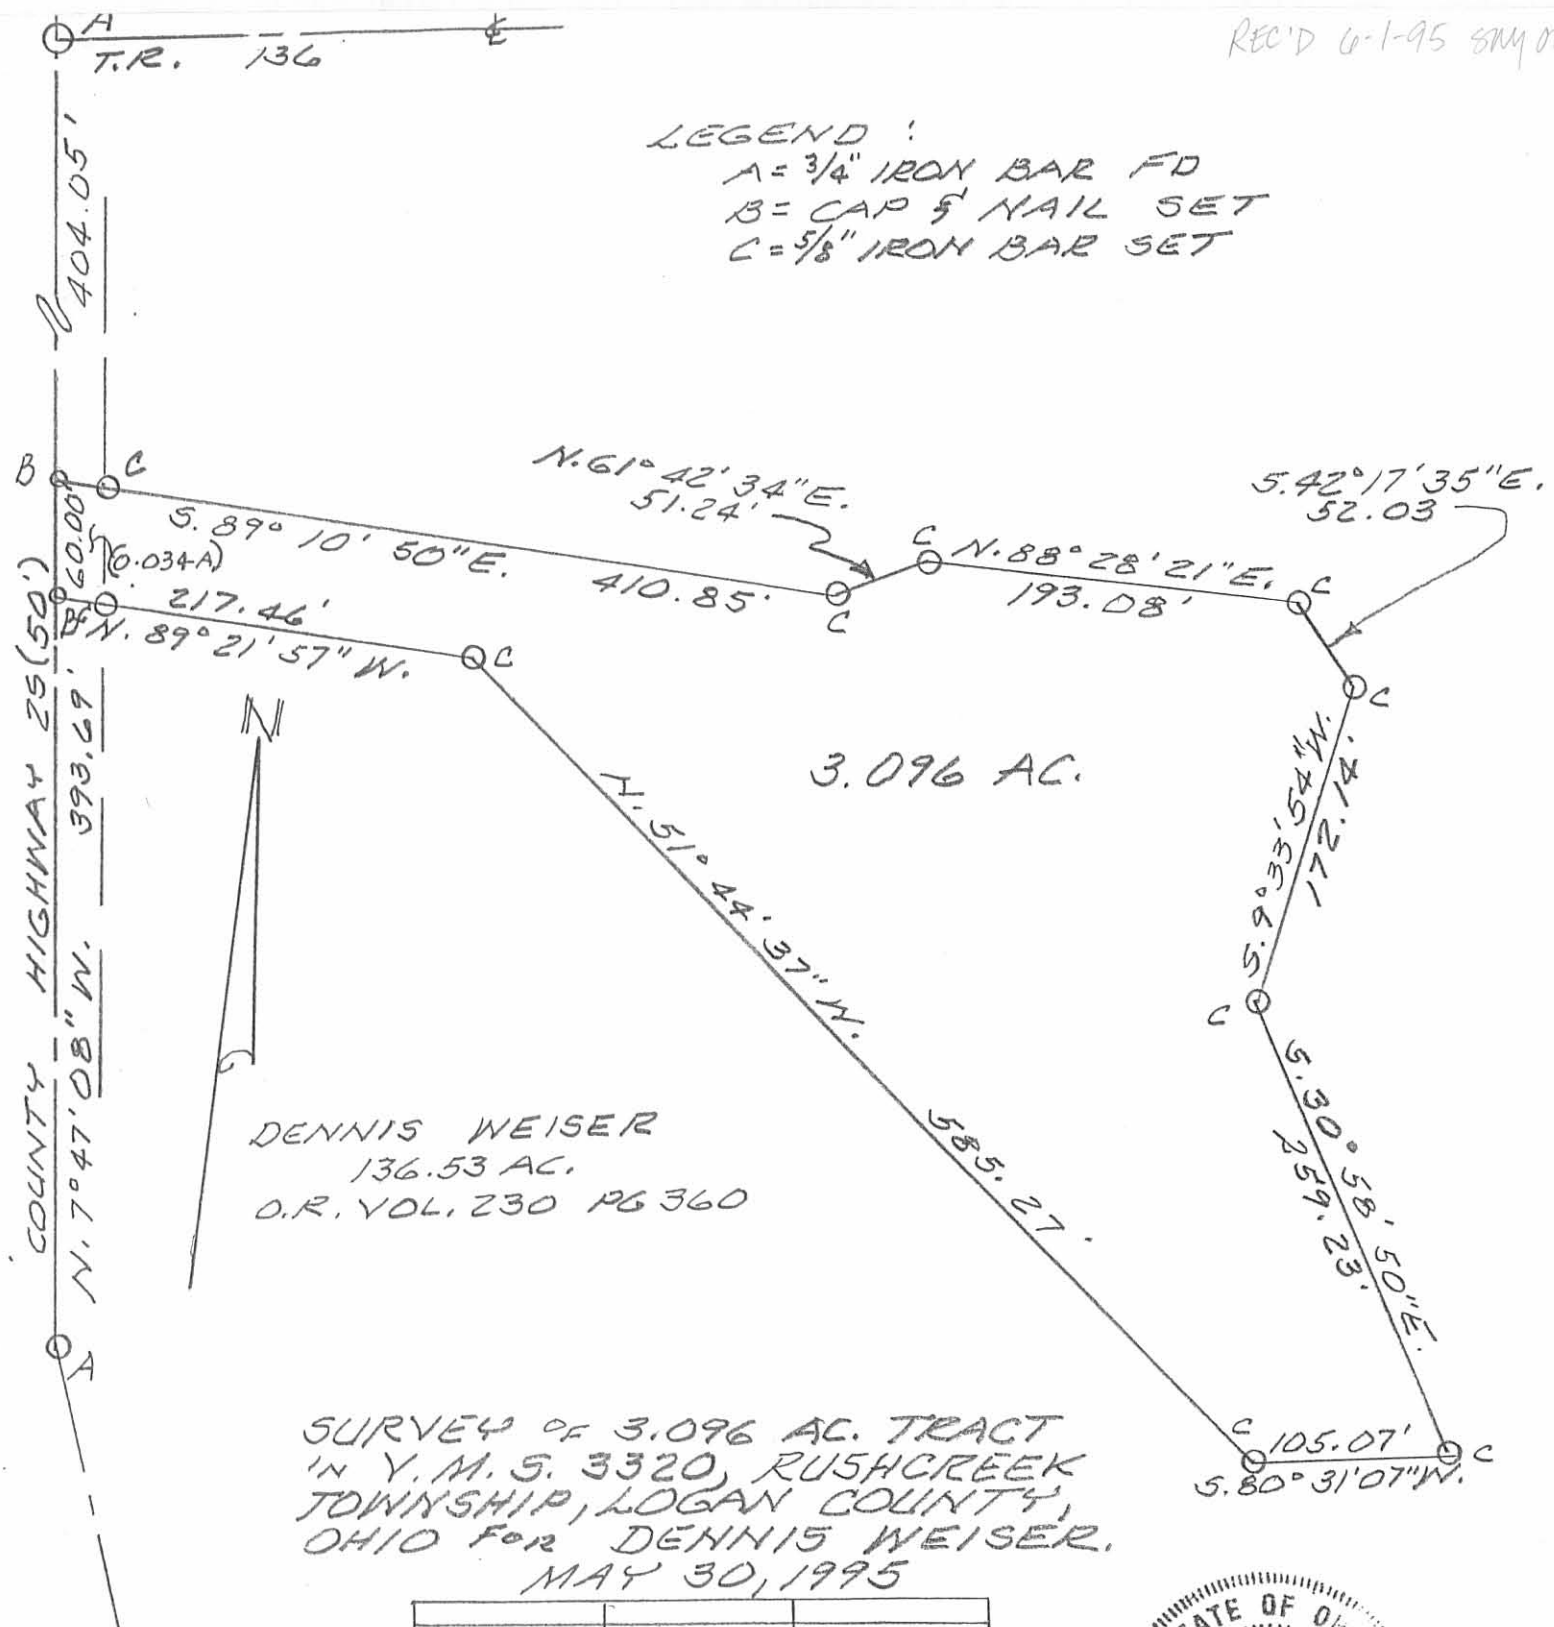 A
T.R. 136
REC'D 6-1-95
404.05'
LEGEND :
A = 3/4" IRON BAR FD
B = CAP & NAIL SET
C = 5/8" IRON BAR SET
B
C
60.00'
(0.034A)
S. 89° 10' 50" E.
410.85'
N. 61° 42' 34" E.
51.24'
C
C
N. 88° 28' 21" E.
193.08'
C
S. 42° 17' 35" E.
52.03
C
B
217.46'
N. 89° 21' 57" W.
C
COUNTY HIGHWAY 25 (50')
N. 7° 47' 08" W. 393.69'
N
3.096 AC.
S. 9° 33' 54" W.
172.14'
C
N. 51° 44' 37" W.
585.27'
S. 30° 58' 50" E.
259.23'
DENNIS WEISER
136.53 AC.
O.R. VOL. 230 PG 360
A
C
105.07'
C
S. 80° 31' 07" W.
SURVEY OF 3.096 AC. TRACT
IN V.M.S. 3320, RUSHCREEK
TOWNSHIP, LOGAN COUNTY,
OHIO FOR DENNIS WEISER.
MAY 30, 1995
ATE OF O